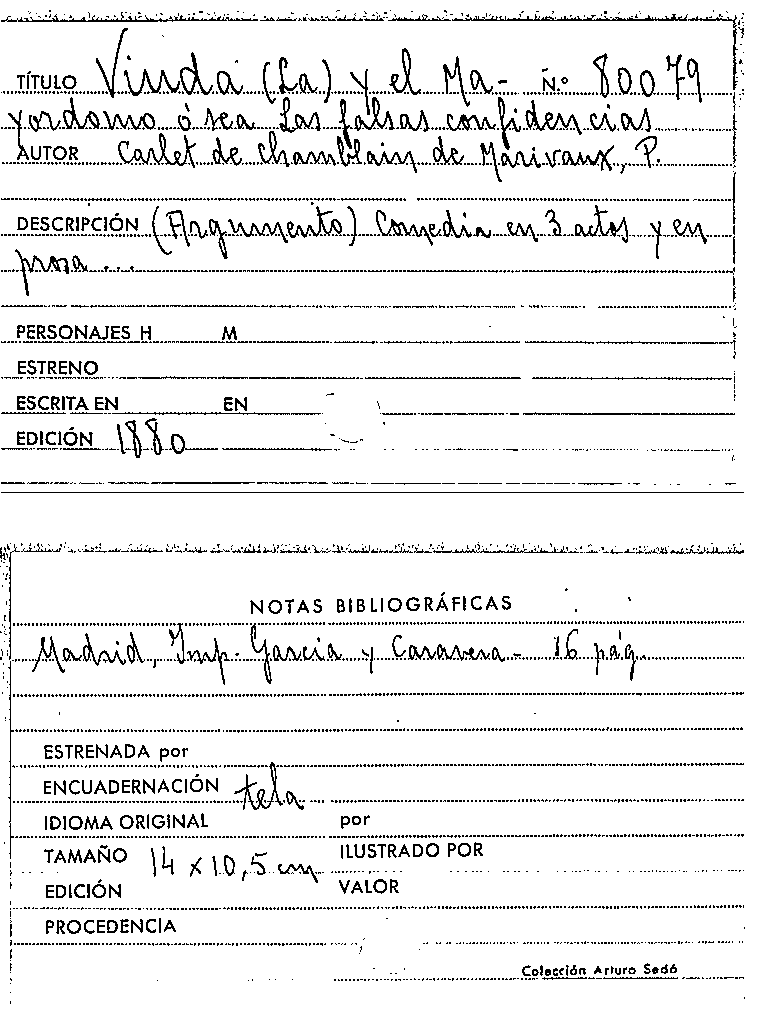 TÍTULO Viuda (La) y el Ma- N.º 80079
yordomo ó sea Las falsas confidencias
AUTOR Carlet de Chamblain de Marivaux, P.
DESCRIPCIÓN (Argumento) Comedia en 3 actos y en
prosa...
PERSONAJES H M
ESTRENO
ESCRITA EN EN
EDICIÓN 1880
NOTAS BIBLIOGRÁFICAS
Madrid, Imp. Garcia y Caravera - 16 pág.
ESTRENADA por
ENCUADERNACIÓN tela
IDIOMA ORIGINAL por
TAMAÑO 14 x 10,5 cm ILUSTRADO POR
EDICIÓN VALOR
PROCEDENCIA
Colección Arturo Sedó